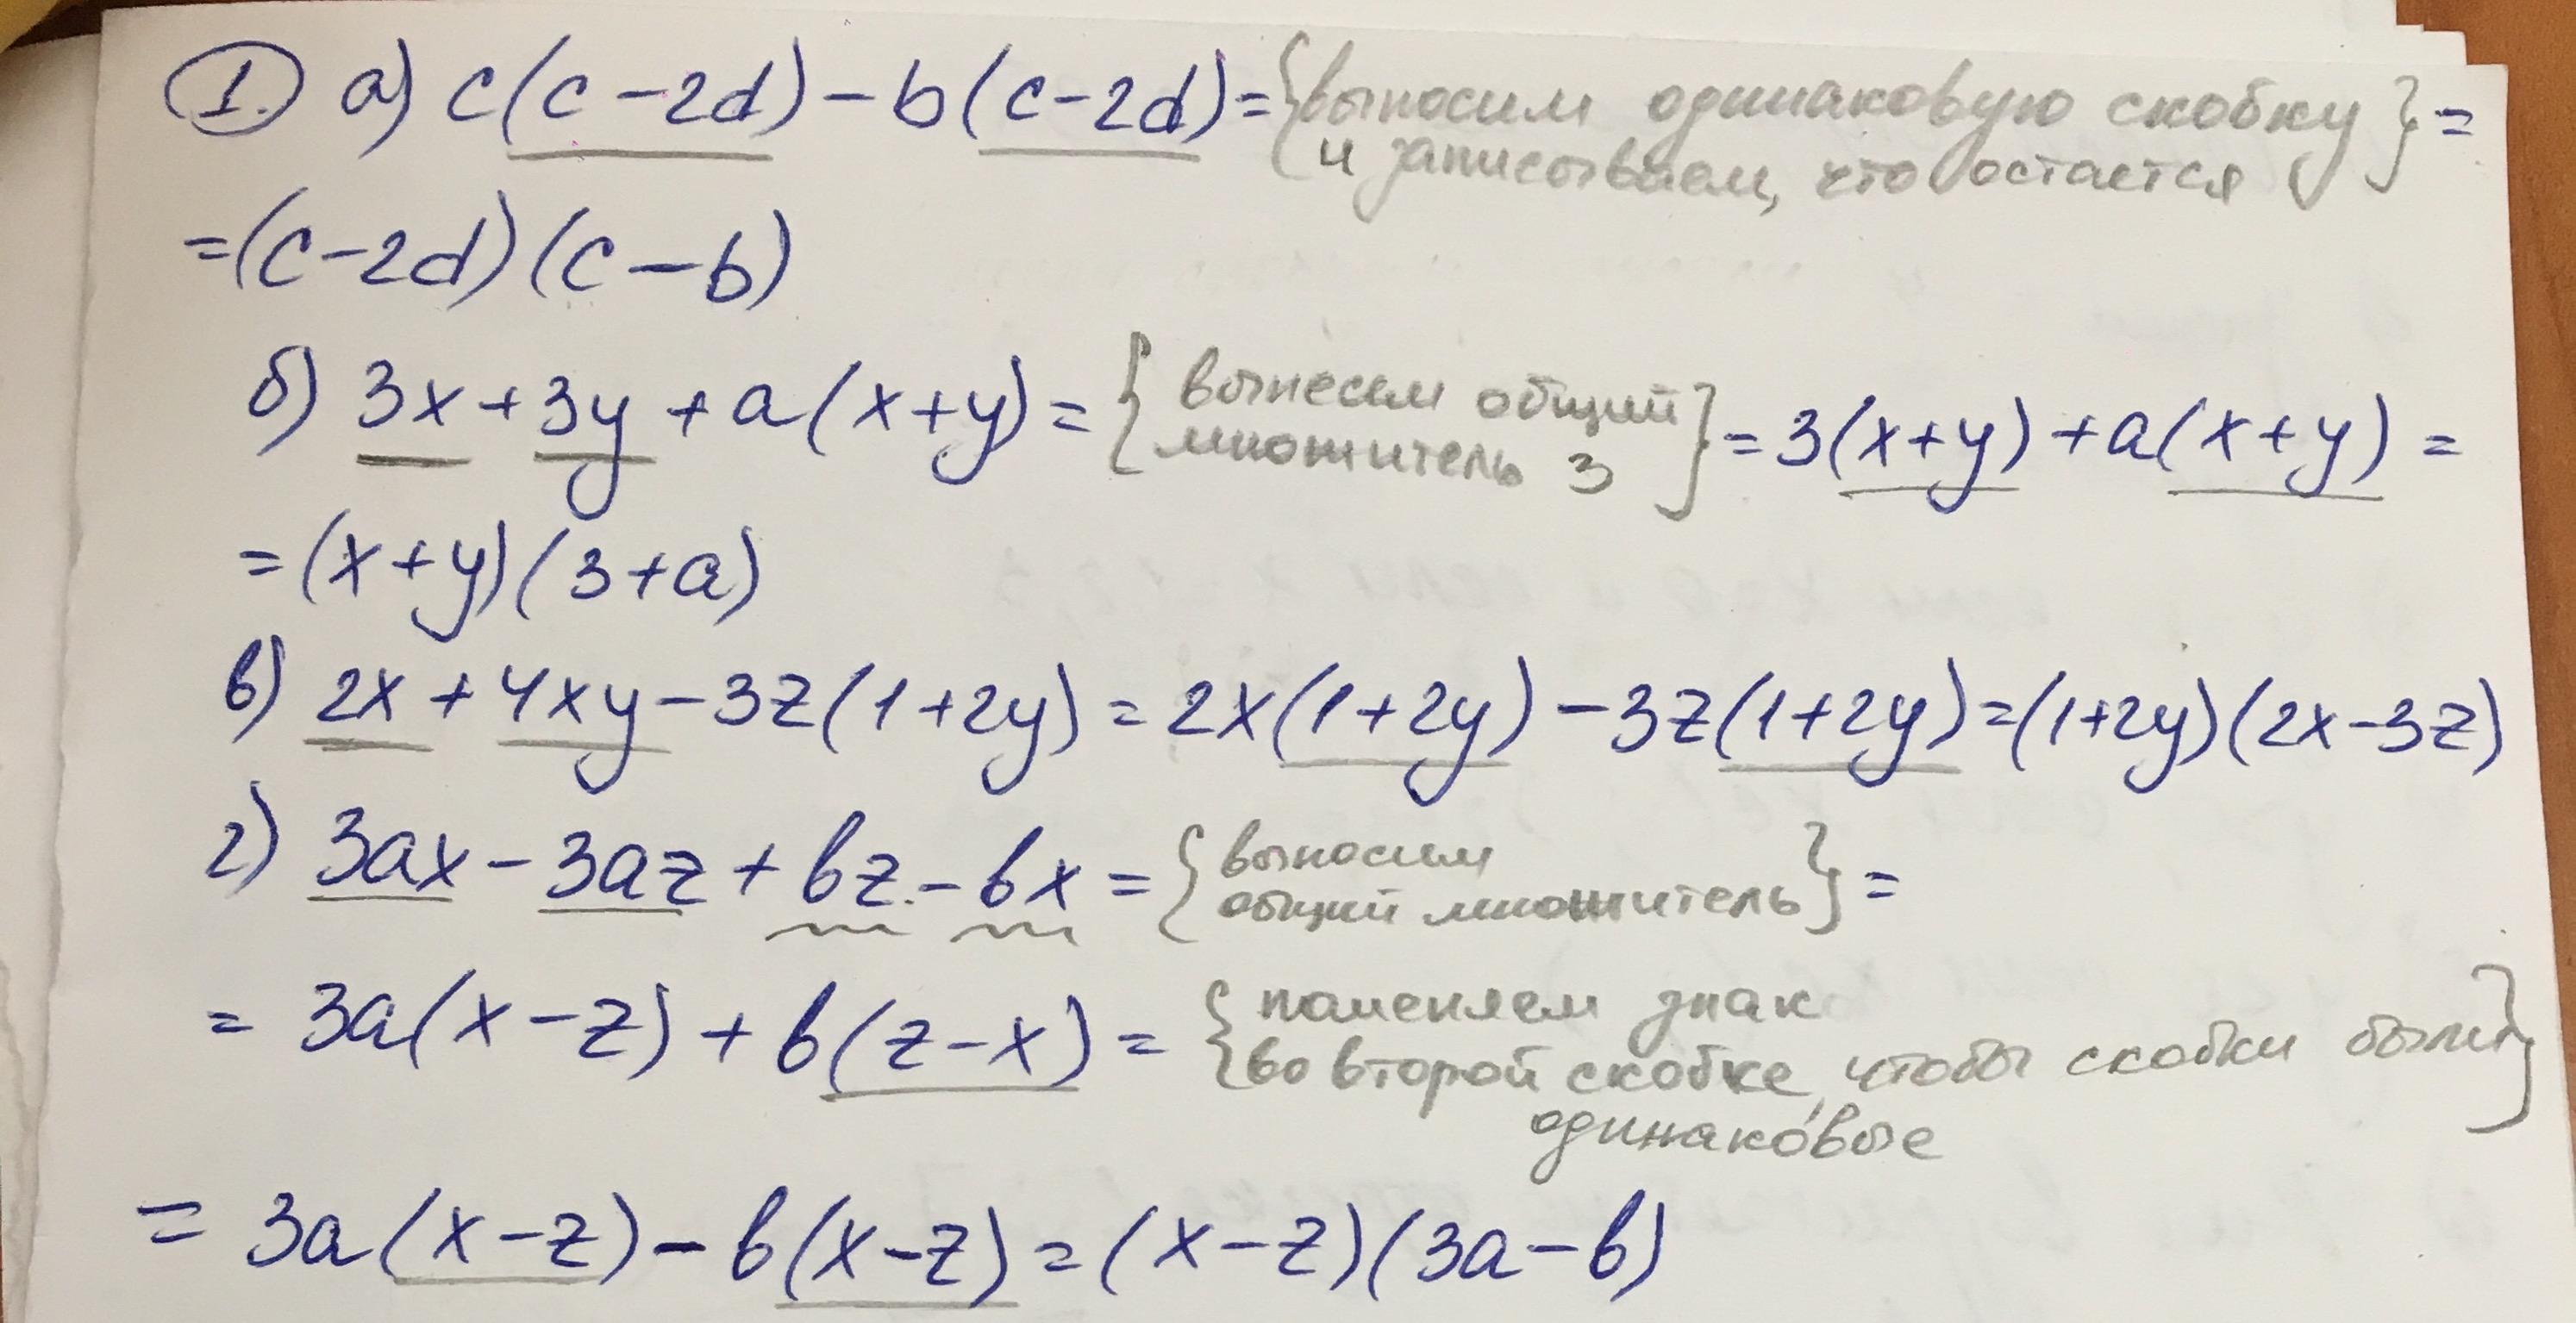 1. а) c(c-2d)-b(c-2d)={выносим одинаковую скобку
и записываем, что остаётся}=
=(c-2d)(c-b)
б) 3x+3y+a(x+y)={вынесем общий
множитель 3}=3(x+y)+a(x+y)=
=(x+y)(3+a)
в) 2x+4xy-3z(1+2y)=2x(1+2y)-3z(1+2y)=(1+2y)(2x-3z)
г) 3ax-3az+bz-bx={выносим
общий множитель}=
=3a(x-z)+b(z-x)={поменяем знак
во второй скобке, чтобы скобки были
одинаковые}
=3a(x-z)-b(x-z)=(x-z)(3a-b)